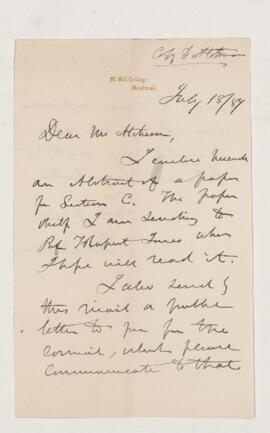 McGill College,
Montreal.
July 18/87
Dear Mr
I enclose herewith
an Abstract of a paper
for Section C. The paper
itself I am sending to
Prof. Rupert Jones who
I hope will read it.
I also send by
this mail a
letter to you for the
council, which please
communicate to that